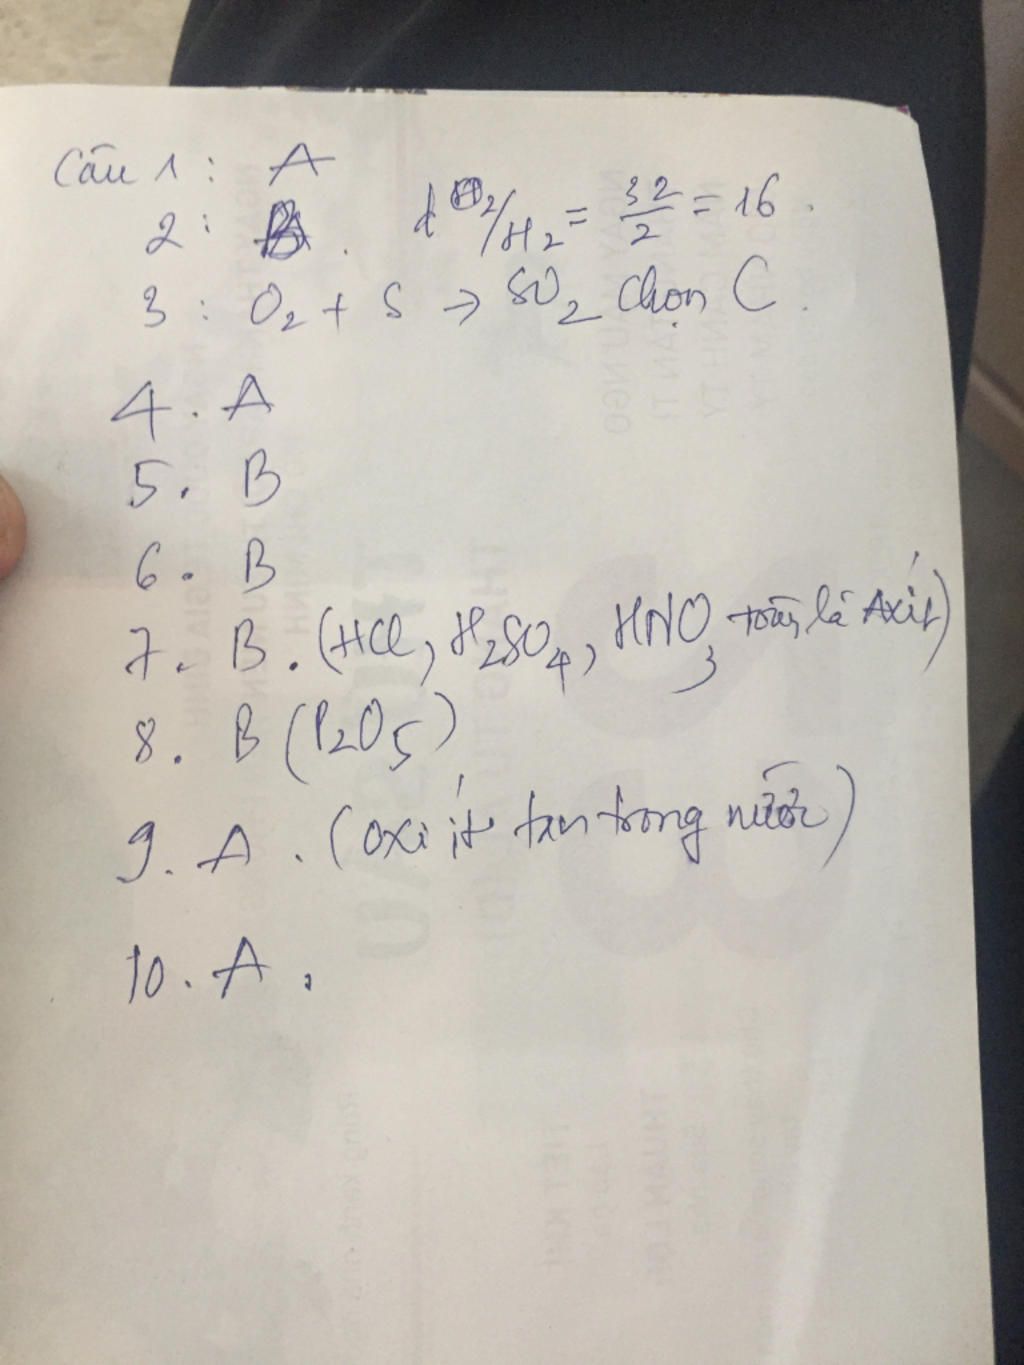 Câu 1: A
2: B. d O2/H2 = 32/2 = 16.
3: O2 + S → SO2 chọn C.
4. A
5. B
6. B
7. B. (HCl, H2SO4, HNO3 toàn là Axít)
8. B (P2O5)
9. A. (oxi ít tan trong nước)
10. A.